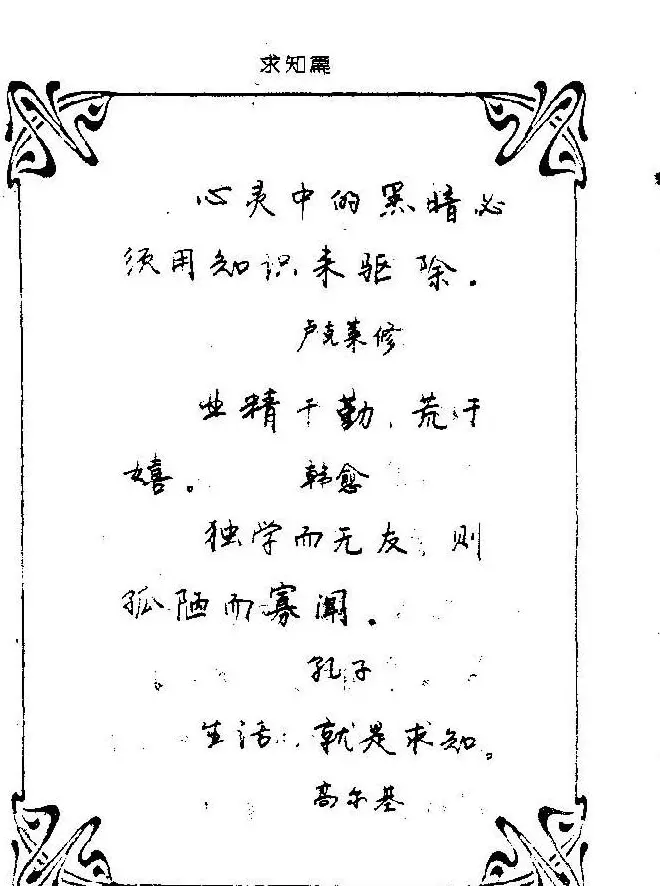 求知篇
心灵中的黑暗必
须用知识来驱除.
卢克莱修
业精于勤,荒于
嬉。 韩愈
独学而无友,则
孤陋而寡闻.
孔子
生活,就是求知。
高尔基